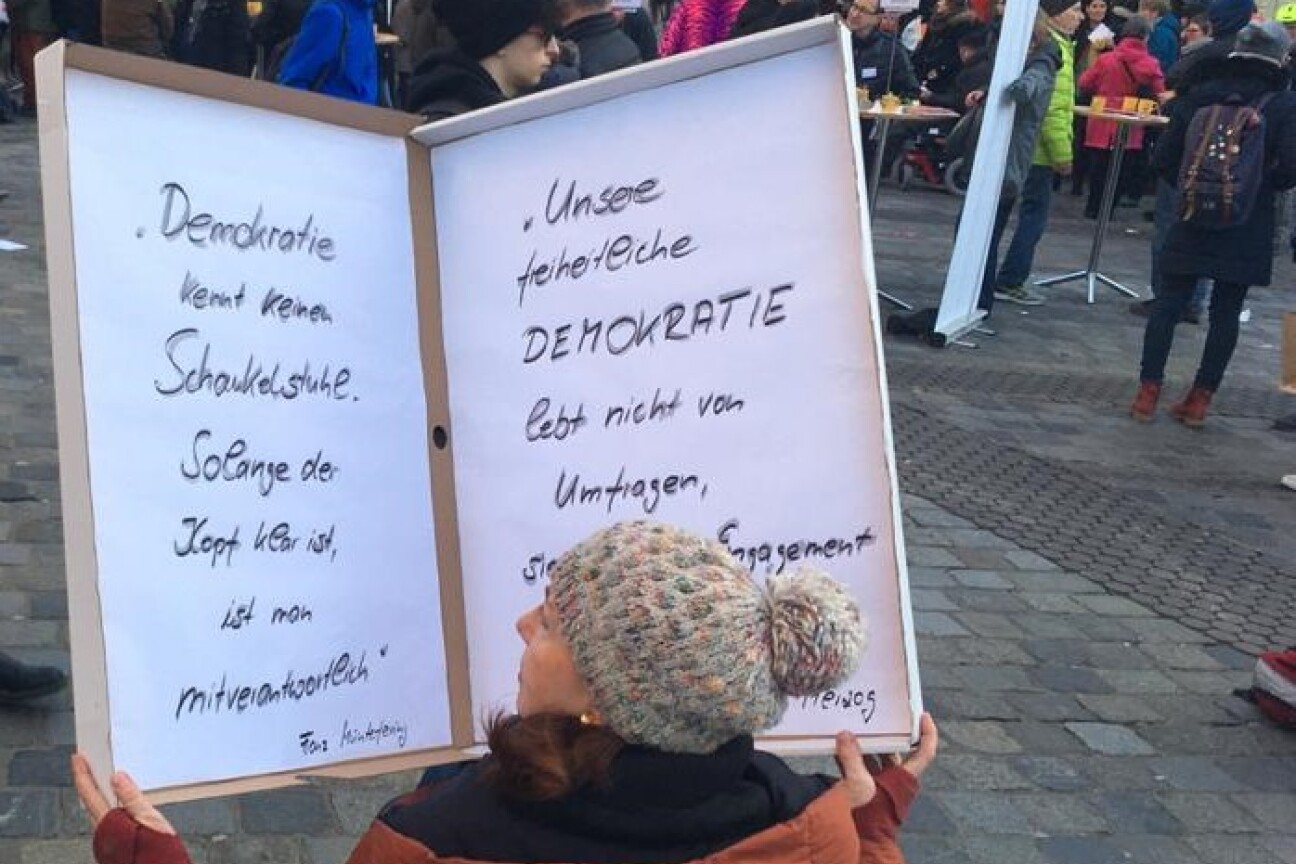 „Demokratie
kennt keinen
Schaukelstuhl.
Solange der
Kopf klar ist,
ist man
mitverantwortlich"
Franz Müntefering
„Unsere
freiheitliche
DEMOKRATIE
lebt nicht von
Umfragen,
Engagement
Herzog